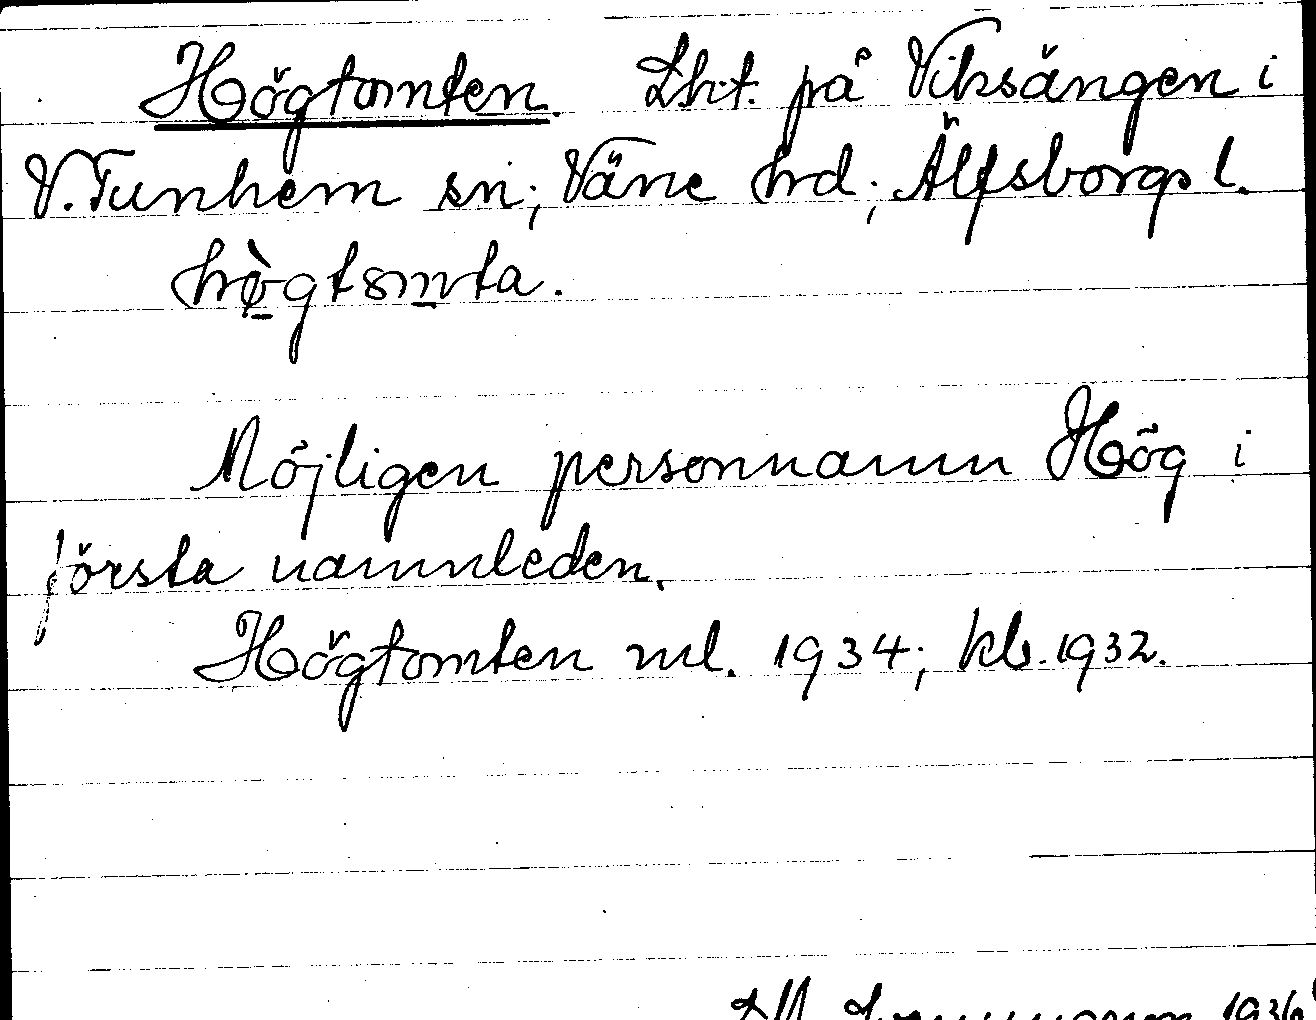 Högtomten. Lht. på Viksängen i
V. Tunhem sn; Väne hrd; Älfsborgs l.
hø̀gtsmta.
Möjligen personnamn Hög i
första namnleden.
Högtomten ml. 1934; kb. 1932.
1936